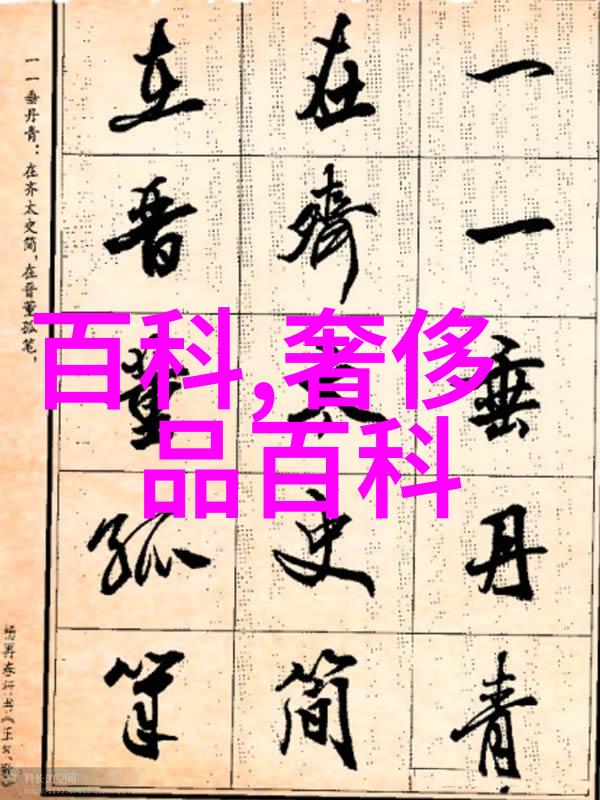 百科,奢侈
品百科
一一垂丹青
在齊太史简
在晋董狐笔
一一垂丹青：在齐太史简，在晋董狐笔，
杨再春行书《正气歌》
科长的空间